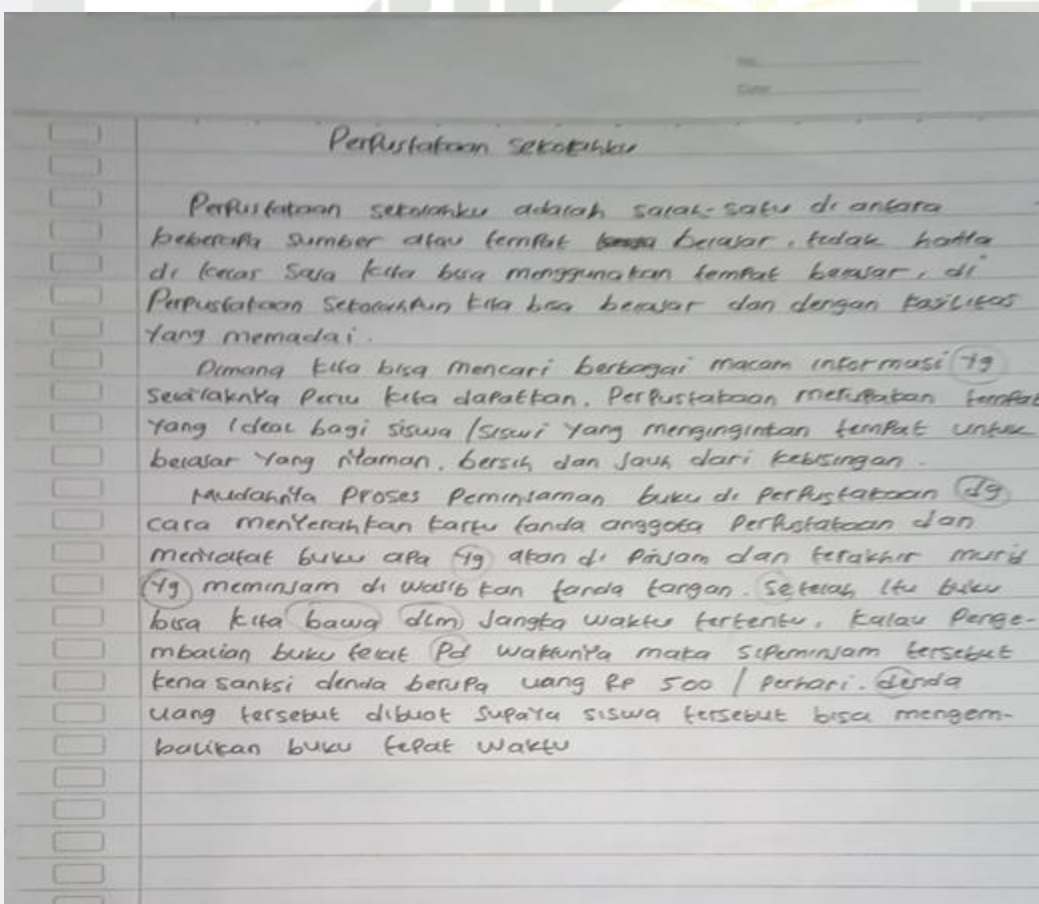 Perpustakaan sekolahku
Perpustakaan sekolahku adalah salah-satu di antara
beberapa sumber atau tempat belajar, tidak hanya
di kelas saja kita bisa menggunakan tempat belajar, di
Perpustakaan sekolahpun kita bisa belajar dan dengan fasilitas
yang memadai.
Dimana kita bisa mencari berbagai macam informasi yg
perlu kita dapatkan. Perpustakaan merupakan tempat
yang ideal bagi siswa/siswi yang menginginkan tempat untuk
belajar yang nyaman, bersih dan jauh dari kebisingan.
Mudahnya proses peminjaman buku di perpustakaan dg
cara menyerahkan kartu tanda anggota perpustakaan dan
mencatat buku apa yg akan di pinjam dan terakhir murid
yg meminjam di wajib kan tanda tangan. Setelah itu buku
bisa kita bawa dlm jangka waktu tertentu, kalau penge-
mbalian buku telat pd waktunya maka sipeminjam tersebut
kena sanksi denda berupa uang Rp 500 / perhari. denda
uang tersebut dibuat supaya siswa tersebut bisa mengem-
balikan buku tepat waktu